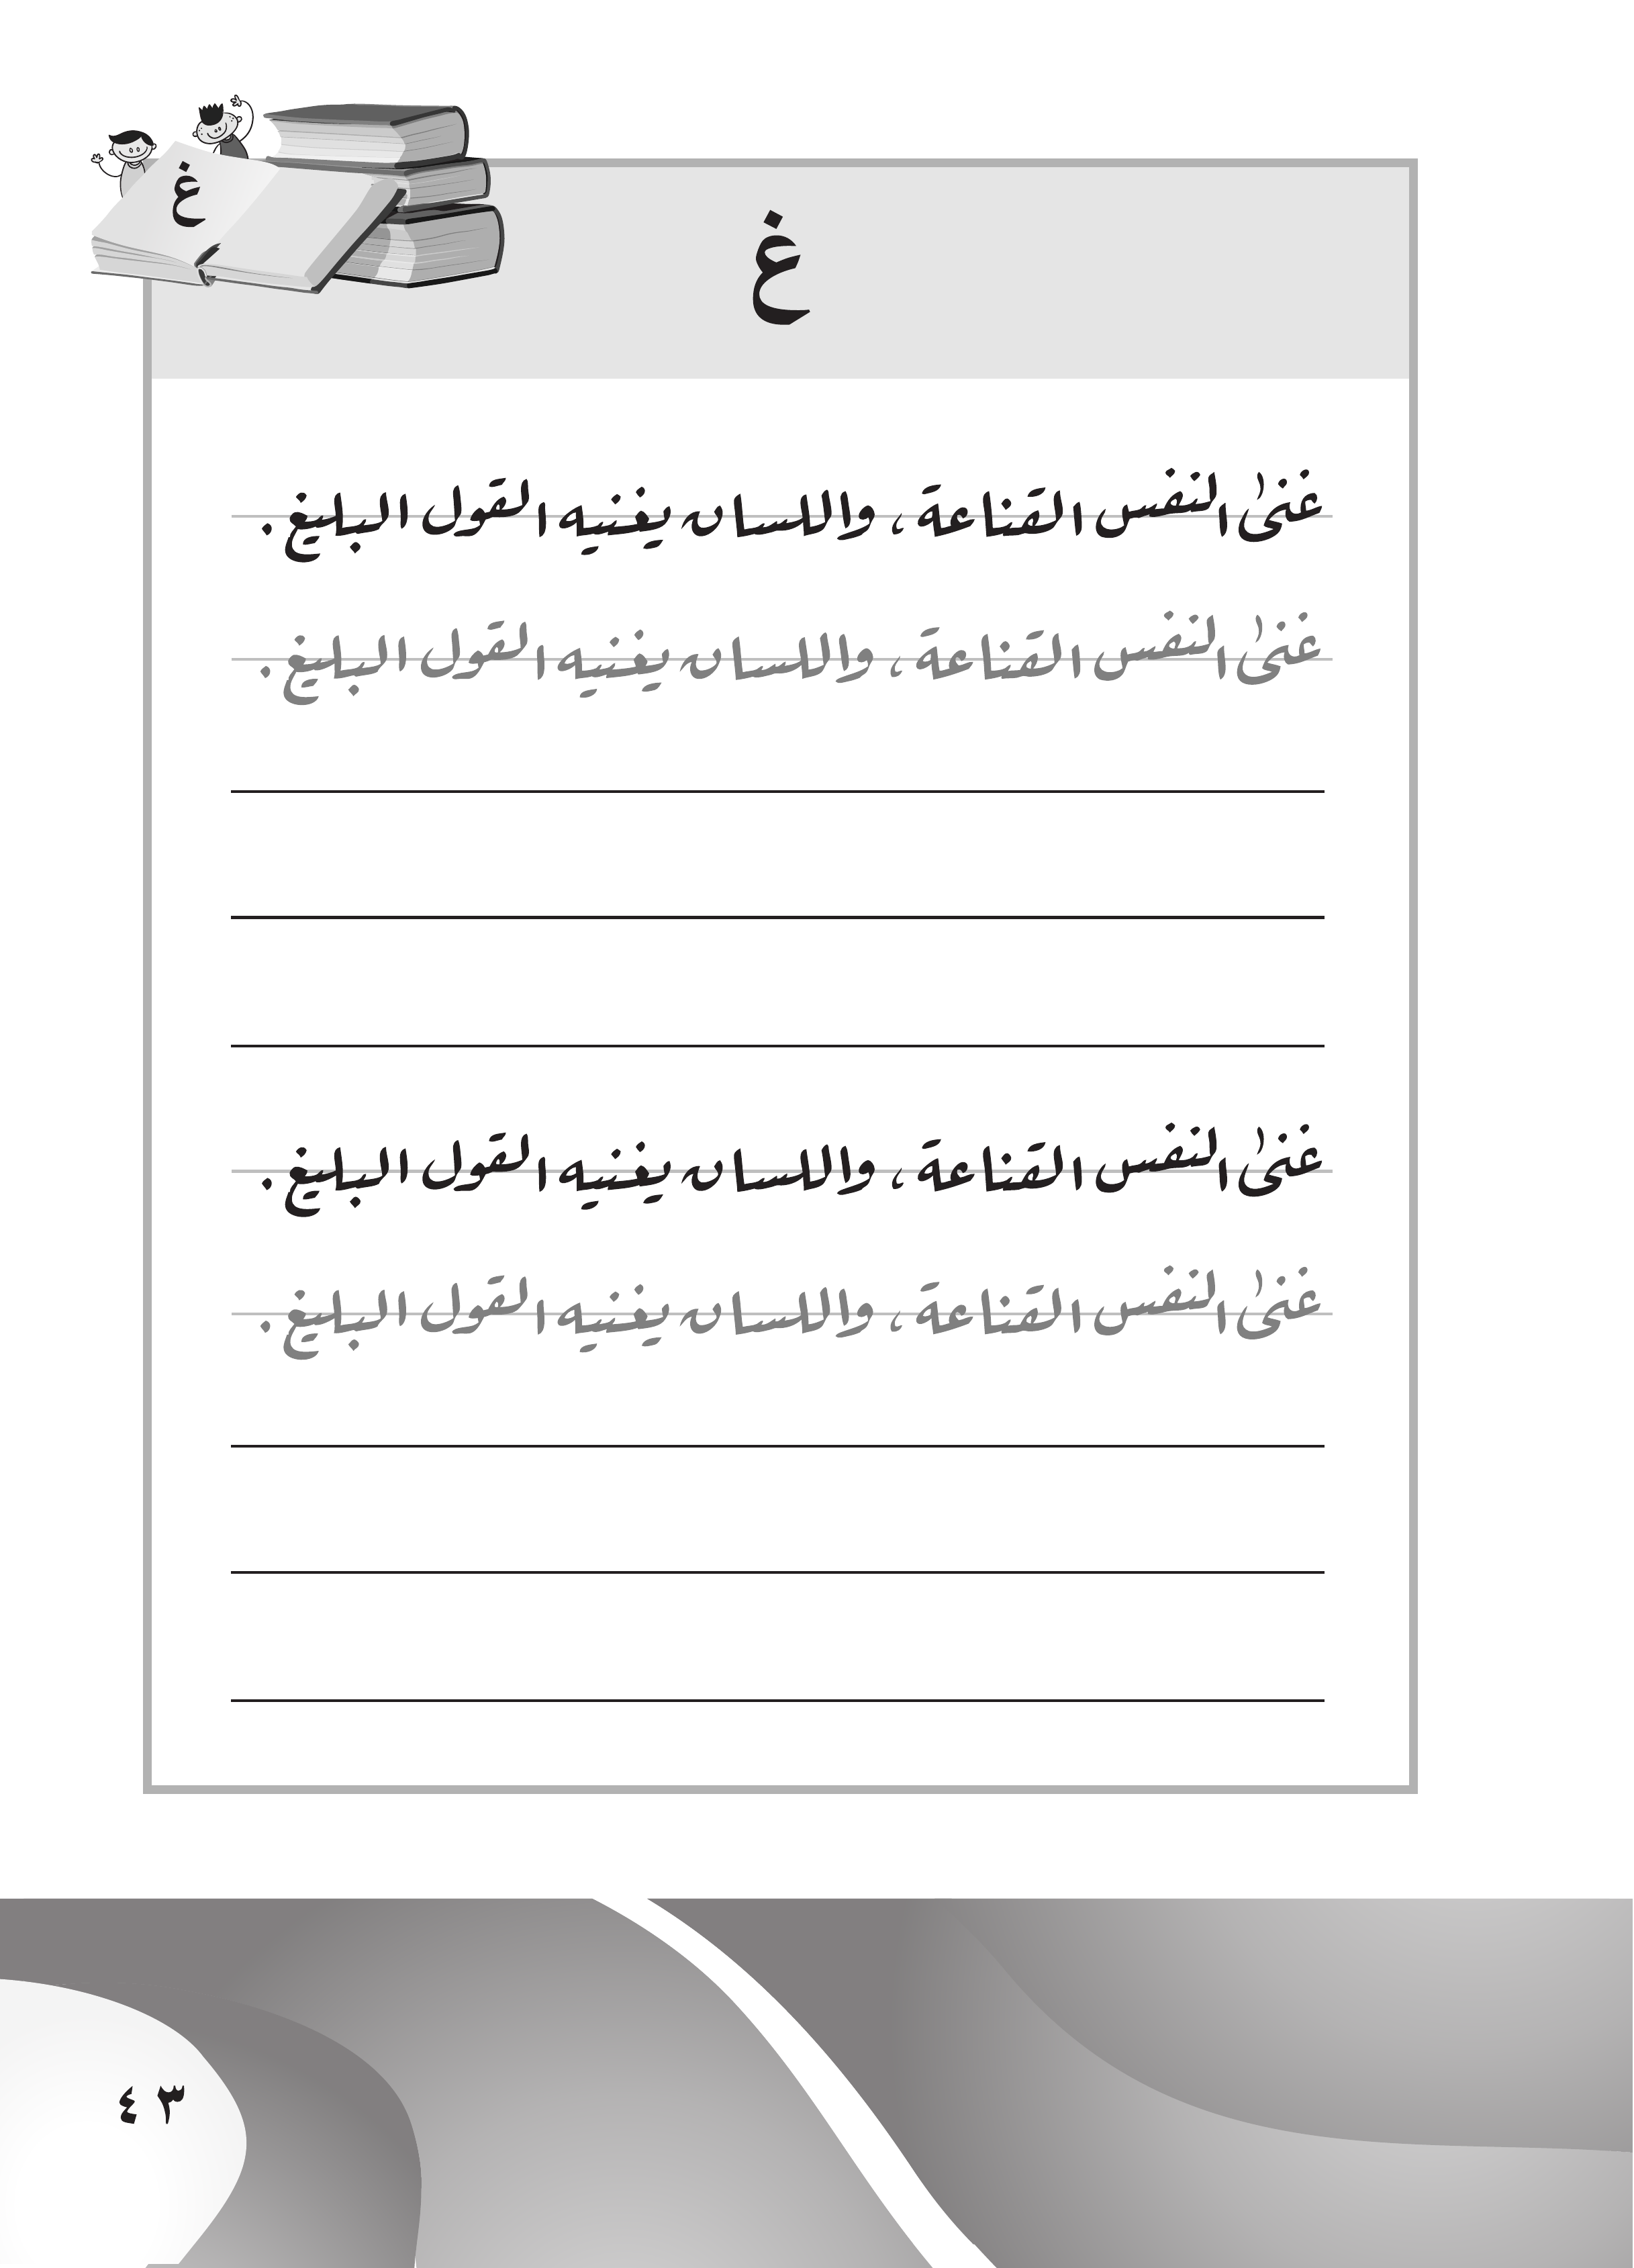 غ
غ
غنىٰ النفس القناعة، واللسان يغنيه القول البليغ.
غنىٰ النفس القناعة، واللسان يغنيه القول البليغ.
غنىٰ النفس القناعة، واللسان يغنيه القول البليغ.
غنىٰ النفس القناعة، واللسان يغنيه القول البليغ.
٤٣